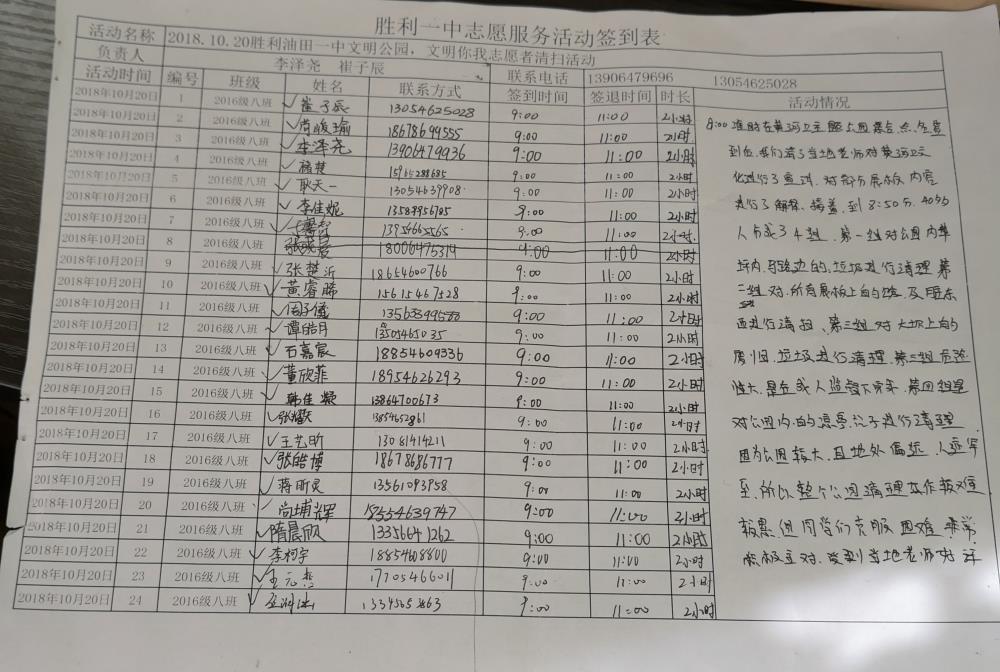 胜利一中志愿服务活动签到表
活动名称 2018.10.20胜利油田一中文明公园，文明你我志愿者清扫活动
负责人 李泽尧 崔子辰 联系电话 13906479696 13054625028
活动时间 编号 班级 姓名 联系方式 签到时间 签退时间 时长 活动情况
2018年10月20日 1 2016级八班 崔子辰 13054625028 9:00 11:00 2小时
2018年10月20日 2 2016级八班 18678699555 9:00 11:00 2小时
2018年10月20日 3 2016级八班 李泽尧 13906479936 9:00 11:00 2小时
2018年10月20日 4 2016级八班 15965288685 9:00 11:00 2小时
2018年10月20日 5 2016级八班 耿天一 13054639908 9:00 11:00 2小时
2018年10月20日 6 2016级八班 李佳妮 13589956705 9:00 11:00 2小时
2018年10月20日 7 2016级八班 9:00 11:00 2小时
2018年10月20日 8 2016级八班 18006475314 9:00 11:00 2小时
2018年10月20日 9 2016级八班 张楚沂 18664600766 9:00 11:00 2小时
2018年10月20日 10 2016级八班 黄睿晞 15615467528 9:00 11:00 2小时
2018年10月20日 11 2016级八班 周子儀 13563899588 9:00 11:00 2小时
2018年10月20日 12 2016级八班 谭皓月 9:00 11:00 2小时
2018年10月20日 13 2016级八班 石嘉宸 18854609336 9:00 11:00 2小时
2018年10月20日 14 2016级八班 董欣菲 18954626293 9:00 11:00 2小时
2018年10月20日 15 2016级八班 韩佳凝 13864700673 9:00 11:00 2小时
2018年10月20日 16 2016级八班 13854652861 9:00 11:00 2小时
2018年10月20日 17 2016级八班 王艺昕 13081414211 9:00 11:00 2小时
2018年10月20日 18 2016级八班 张皓博 18678686777 9:00 11:00 2小时
2018年10月20日 19 2016级八班 蒋昕灵 13561093958 9:00 11:00 2小时
2018年10月20日 20 2016级八班 尚埔辉 15554639747 9:00 11:00 2小时
2018年10月20日 21 2016级八班 隋晨欣 13356471262 9:00 11:00 2小时
2018年10月20日 22 2016级八班 李柯宇 18854608800 9:00 11:00 2小时
2018年10月20日 23 2016级八班 17705466011 9:00 11:00 2小时
2018年10月20日 24 2016级八班 13345652863 9:00 11:00 2小时
9:00准时在黄河公园集合点
到位,我们请了当地老师对黄河文
化进行了宣讲,对部分展板内容
进行了解释,接着,到8:50分,40多
人分成了4组,第一组对公园内草
坪内,马路边的垃圾进行清理,第
二组对所有展板上的及
面进行清扫,第三组对大坝上的
垃圾进行清理,第三组危险
性大,是在成人监督下完成,第四组
对公园内的进行清理
因为公园较大,且地处偏远,人迹罕
至,所以整个公园清理工作较难
较累,但同学们克服困难
积极应对,受到当地老师好评